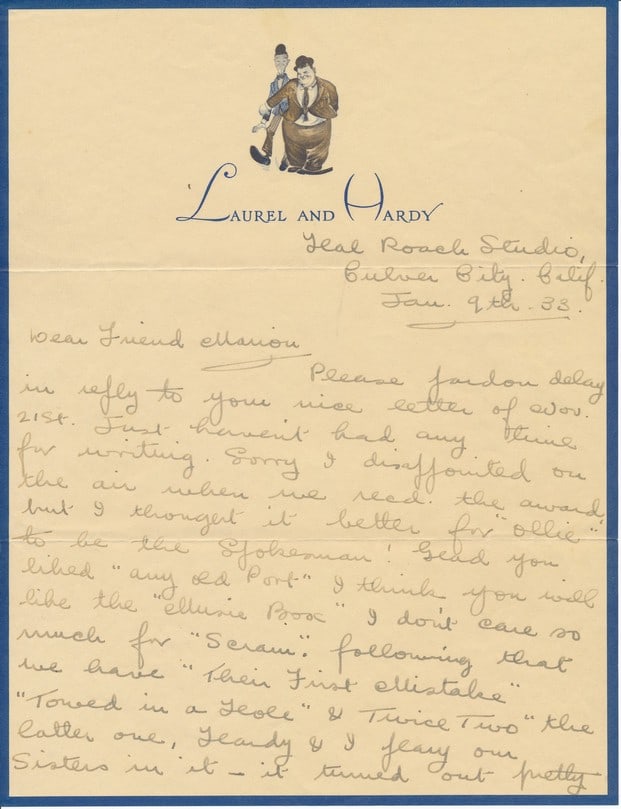 LAUREL AND HARDY
Hal Roach Studio,
Culver City. Calif.
Jan. 9th. 33.
Dear Friend Marion
Please pardon delay
in reply to your nice letter of Nov.
21st. Just haven't had any time
for writing. Sorry I disappointed on
the air when we recd. the award,
but I thought it better for "Ollie"
to be the Spokesman! Glad you
liked "any old Port" I think you will
like the "Music Box" I don't care so
much for "Scram". following that
we have "Their First Mistake"
"Towed in a Hole" & Twice Two" the
latter one, Hardy & I play our
Sisters in it – it turned out pretty